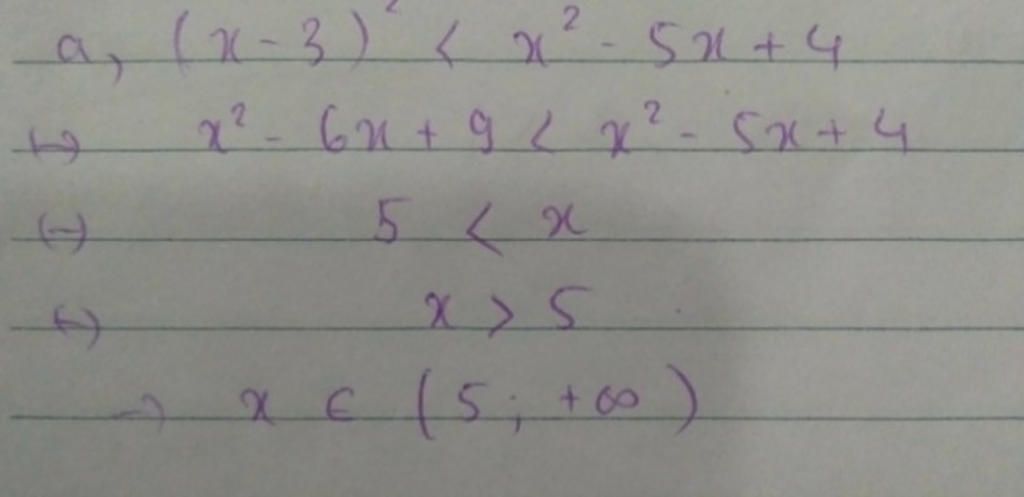 a, (x-3)² < x² - 5x + 4
↔ x² - 6x + 9 < x² - 5x + 4
↔ 5 < x
↔ x > 5
→ x ∈ (5; +∞)